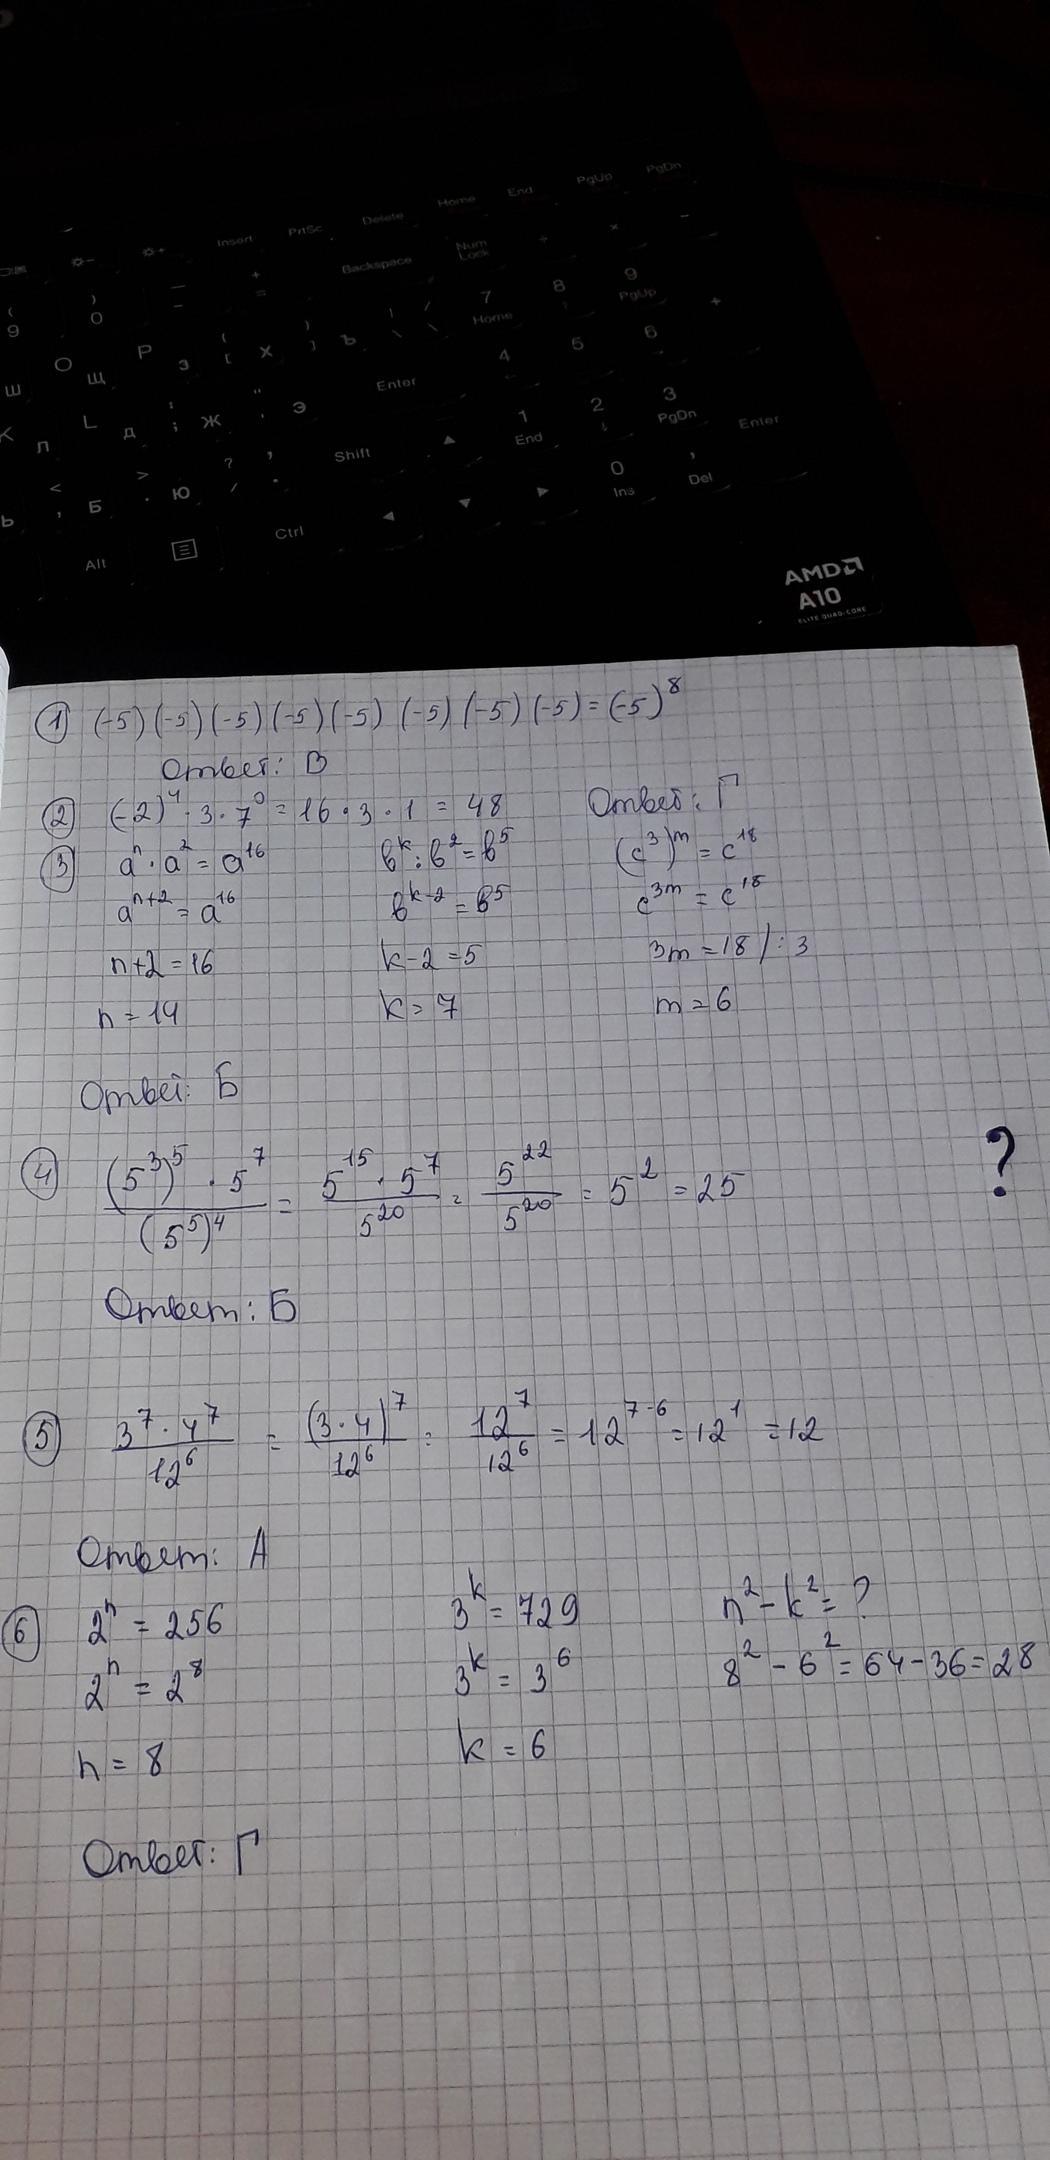 Insert PrtSc Delete Home End PgUp PgDn
( ) — + Backspace Num Lock ÷ × −
9 0 − =
7 8 9
Home PgUp +
Ш О Щ Р З { [ Х } ] Ъ | / \ \
4 5 6
К Л L Д : ; Ж " ' Э Enter
1 2 3
End PgDn Enter
Ь < , Б > . Ю ? / , . Shift
0 ,
Ins Del
Alt Ctrl
AMD
A10
ELITE QUAD-CORE
① (-5)(-5)(-5)(-5)(-5)(-5)(-5)(-5)=(-5)⁸
Ответ: В
② (-2)⁴·3·7⁰=16·3·1=48 Ответ: Г
③ aⁿ·a²=a¹⁶ вᵏ:в²=в⁵ (c³)ᵐ=c¹⁸
aⁿ⁺²=a¹⁶ вᵏ⁻²=в⁵ c³ᵐ=c¹⁸
n+2=16 k-2=5 3m=18/:3
n=14 k=7 m=6
Ответ: Б
④ (5³)⁵·5⁷/(5⁵)⁴ = 5¹⁵·5⁷/5²⁰ = 5²²/5²⁰ = 5² = 25 ?
Ответ: Б
⑤ 3⁷·4⁷/12⁶ = (3·4)⁷/12⁶ = 12⁷/12⁶ = 12⁷⁻⁶ = 12¹ = 12
Ответ: А
⑥ 2ⁿ=256 3ᵏ=729 n²-k²=?
2ⁿ=2⁸ 3ᵏ=3⁶ 8²-6²=64-36=28
n=8 k=6
Ответ: Г